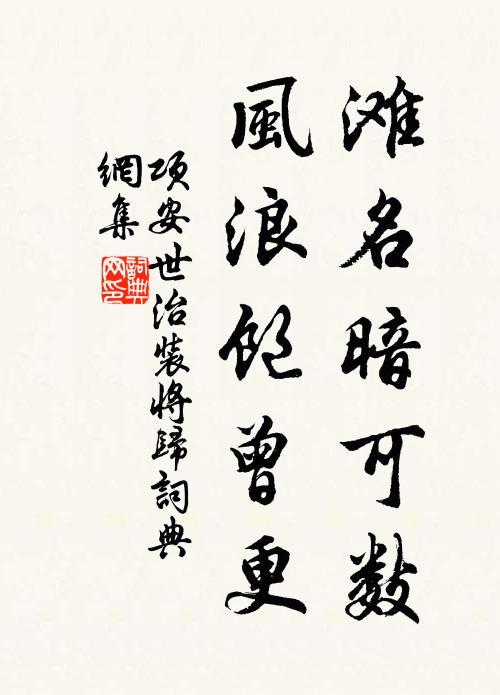 滩名暗可数
風浪飽曾更
項安世治装將歸詞典
網集
詞典
网印